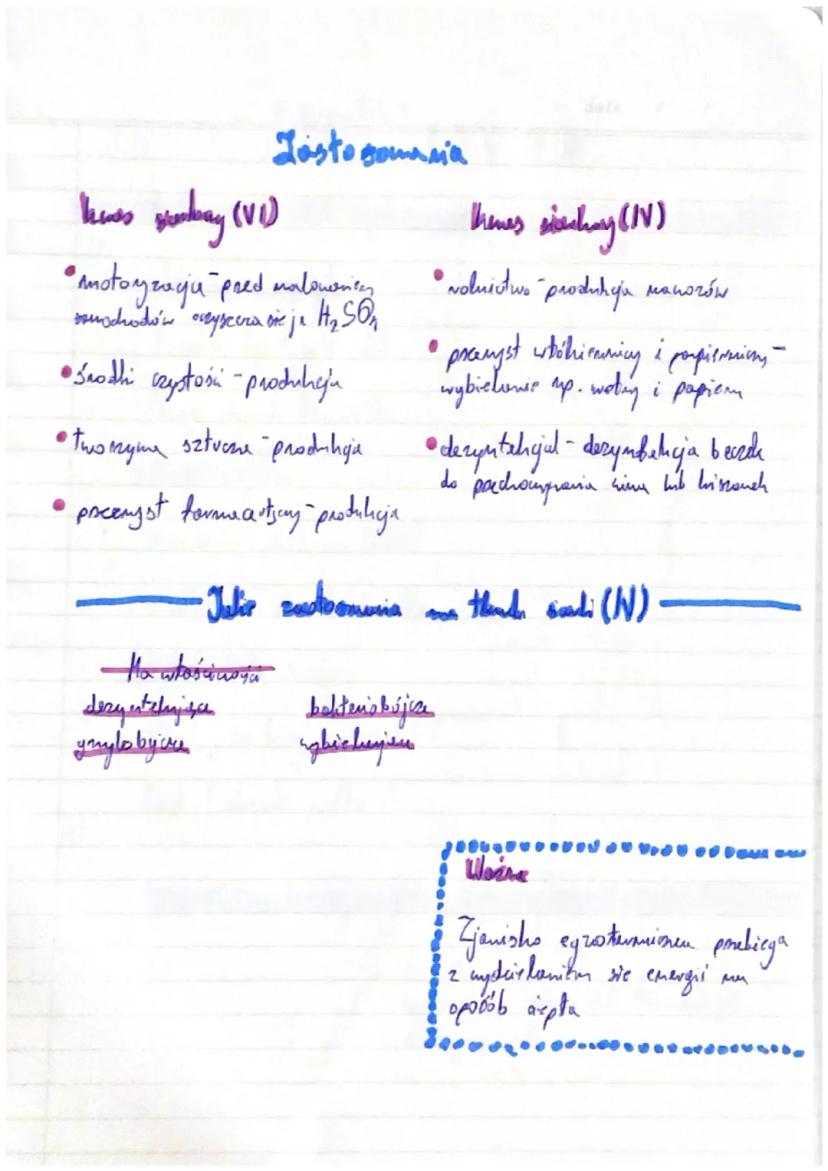 Zastosowania
kwas siarkowy (VI)
• motoryzacja - pred malowaniem
samochodów oczyszcza się je H₂SO₄
• środki czystości - produkcja
• tworzywa sztuczne - produkcja
• przemysł farmaceutyczny - produkcja
kwas siarkowy (IV)
• rolnictwo - produkcja nawozów
• przemysł włókienniczy i papierniczy -
wybielanie np. wełny i papieru
• dezynfekcja - dezynfekcja beczek
do przechowywania wina lub kiszonek
Jakie zastosowania ma tlenek siarki (IV)
Ma właściwości
dezynfekujące bakteriobójcze
grzybobójcze wybielające
Ważne
Zjawisko egzotermiczne przebiega
z wydzielaniem się energii na
sposób ciepła